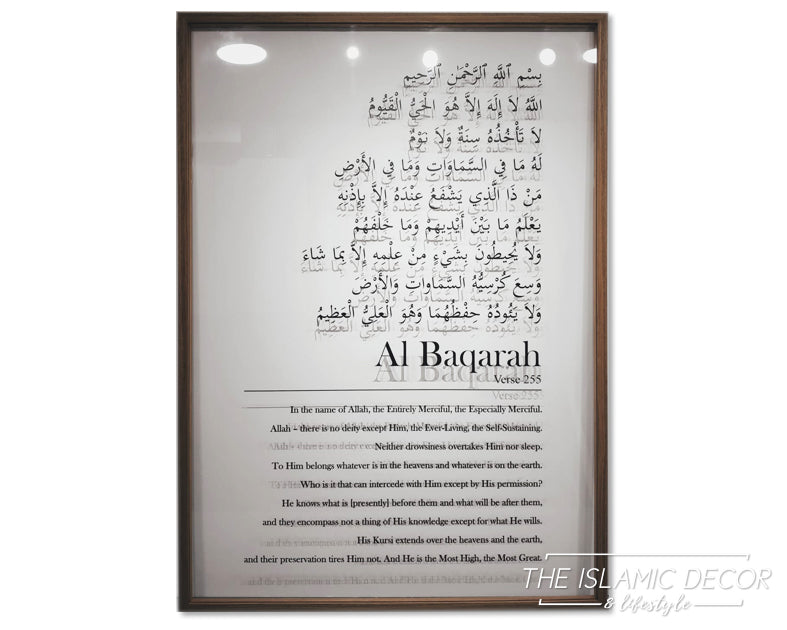 بِسْمِ ٱللَّهِ ٱلرَّحْمَٰنِ ٱلرَّحِيمِ
اللَّهُ لاَ إِلَهَ إِلاَّ هُوَ الْحَيُّ الْقَيُّومُ
لاَ تَأْخُذُهُ سِنَةٌ وَلاَ نَوْمٌ
لَهُ مَا فِي السَّمَاوَاتِ وَمَا فِي الأَرْضِ
مَنْ ذَا الَّذِي يَشْفَعُ عِنْدَهُ إِلاَّ بِإِذْنِهِ
يَعْلَمُ مَا بَيْنَ أَيْدِيهِمْ وَمَا خَلْفَهُمْ
وَلاَ يُحِيطُونَ بِشَيْءٍ مِنْ عِلْمِهِ إِلاَّ بِمَا شَاءَ
وَسِعَ كُرْسِيُّهُ السَّمَاوَاتِ وَالأَرْضَ
وَلاَ يَئُودُهُ حِفْظُهُمَا وَهُوَ الْعَلِيُّ الْعَظِيمُ
Al Baqarah
Verse 255
In the name of Allah, the Entirely Merciful, the Especially Merciful.
Allah – there is no deity except Him, the Ever-Living, the Self-Sustaining.
Neither drowsiness overtakes Him nor sleep.
To Him belongs whatever is in the heavens and whatever is on the earth.
Who is it that can intercede with Him except by His permission?
He knows what is [presently] before them and what will be after them,
and they encompass not a thing of His knowledge except for what He wills.
His Kursi extends over the heavens and the earth,
and their preservation tires Him not. And He is the Most High, the Most Great.
THE ISLAMIC DECOR
& lifestyle